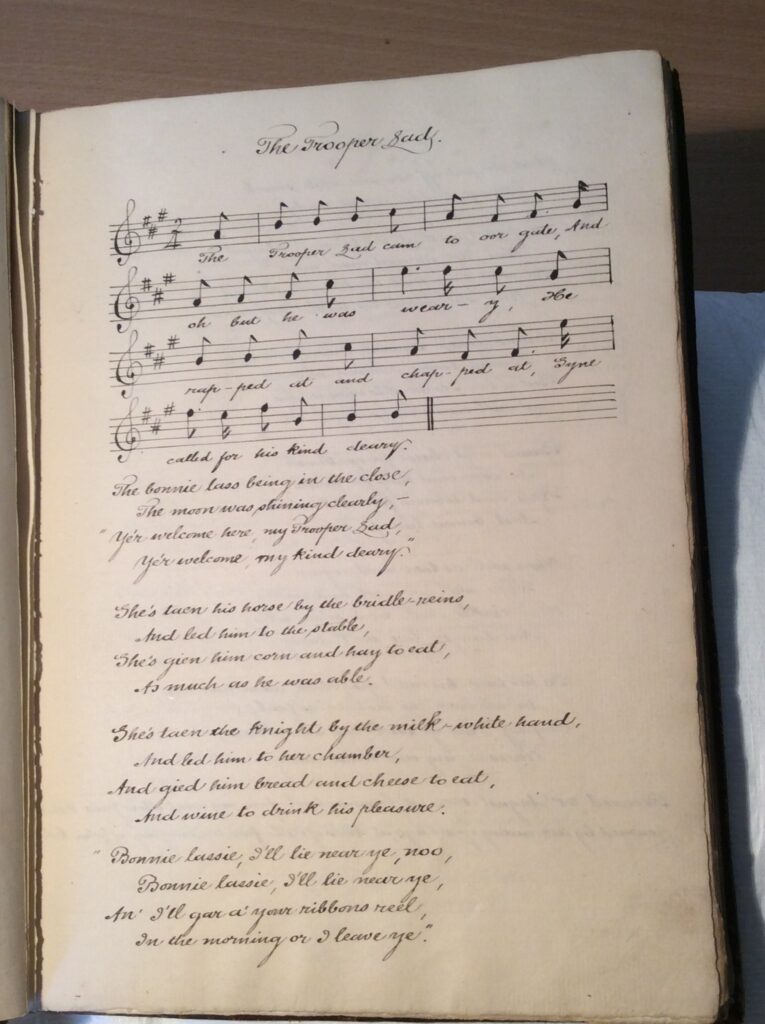 The Trooper Lad.
2/4
The Trooper Lad cam to oor gate, And
oh but he was wear-y, He
rap-ped at and chap-ped at, Syne
called for his kind deary.
The bonnie lass being in the close,
The moon was shining clearly, –
"Ye'r welcome here, my Trooper Lad,
Ye'r welcome, my kind deary."
She's taen his horse by the bridle-reins,
And led him to the stable,
She's gien him corn and hay to eat,
As much as he was able.
She's taen the knight by the milk-white hand,
And led him to her chamber,
And gied him bread and cheese to eat,
And wine to drink his pleasure.
"Bonnie lassie, I'll lie near ye, noo,
Bonnie lassie, I'll lie near ye,
An' I'll gar a' your ribbons reel,
In the morning or I leave ye."